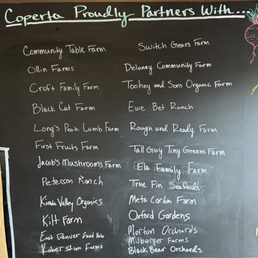 Coperta Proudly Partners With....
Community Table Farm
Ollin Farms
Croft Family Farm
Black Cat Farm
Long's Peak Lamb Farm
First Fruits Farm
Jacob's Mushrooms Farm
Peterson Ranch
Kiowa Valley Organics
Kilt Farm
East Denver Food Hub
Esoterra Farms
Switch Gears Farm
Delaney Community Farm
Toohey and Sons Organic Farm
Ewe Bet Ranch
Rough and Ready Farm
Tall Guy Tiny Greens Farm
Ella Family Farm
True Fin Seafoods
Meta Carbon Farm
Oxford Gardens
Morton Orchards
Milberger Farms
Black Bear Orchards